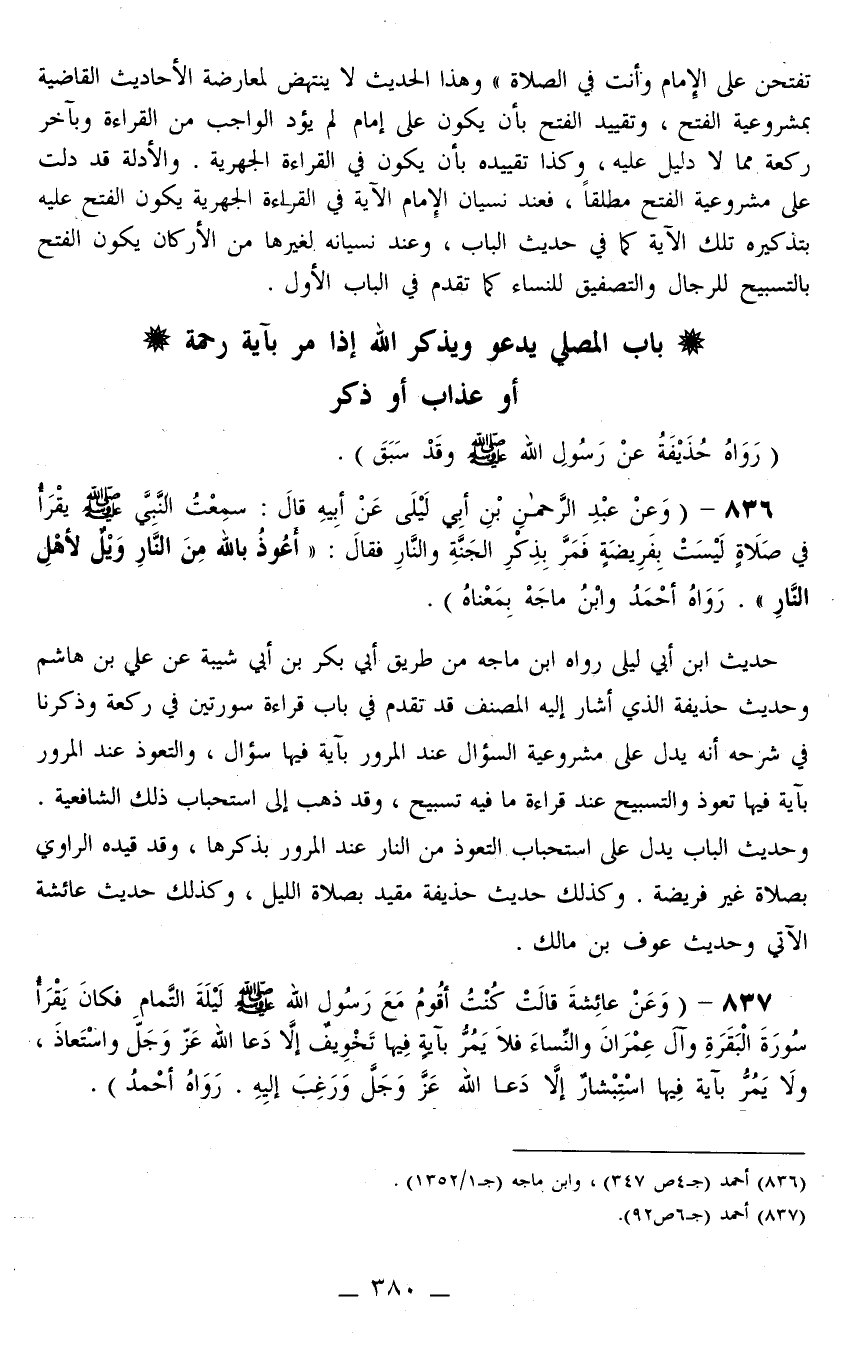 تفتحن على الإِمام وأنت في الصلاة » وهذا الحديث لا ينتهض لمعارضة الأحاديث القاضية
بمشروعية الفتح ، وتقييد الفتح بأن يكون على إمام لم يؤد الواجب من القراءة وبآخر
ركعة مما لا دليل عليه ، وكذا تقييده بأن يكون في القراءة الجهرية . والأدلة قد دلت
على مشروعية الفتح مطلقاً ، فعند نسيان الإِمام الآية في القراءة الجهرية يكون الفتح عليه
بتذكيره تلك الآية كما في حديث الباب ، وعند نسيانه لغيرها من الأركان يكون الفتح
بالتسبيح للرجال والتصفيق للنساء كما تقدم في الباب الأول .
باب المصلي يدعو ويذكر الله إذا مر بآية رحمة
أو عذاب أو ذكر
( رَوَاهُ حُذَيْفَةُ عنْ رَسُولِ الله ﷺ وقَدْ سَبَقَ ) .
٨٣٦ – ( وَعنْ عَبْدِ الرَّحمٰنِ بْنِ أبي لَيْلَى عَنْ أبيهِ قالَ : سمِعْتُ النَّبِيَّ ﷺ يقْرَأُ
في صَلَاةٍ لَيْسَتْ بِفَرِيضَةٍ فَمَرَّ بِذِكْرِ الجَنَّةِ والنَّارِ فقالَ : « أَعُوذُ بالله مِنَ النَّارِ وَيْلٌ لأهْلِ
النَّارِ » . رَوَاهُ أحْمَدُ وابْنُ ماجَهْ بِمَعْناهُ ) .
حديث ابن أبي ليلى رواه ابن ماجه من طريق أبي بكر بن أبي شيبة عن علي بن هاشم
وحديث حذيفة الذي أشار إليه المصنف قد تقدم في باب قراءة سورتين في ركعة وذكرنا
في شرحه أنه يدل على مشروعية السؤال عند المرور بآية فيها سؤال ، والتعوذ عند المرور
بآية فيها تعوذ والتسبيح عند قراءة ما فيه تسبيح ، وقد ذهب إلى استحباب ذلك الشافعية .
وحديث الباب يدل على استحباب التعوذ من النار عند المرور بذكرها ، وقد قيده الراوي
بصلاة غير فريضة . وكذلك حديث حذيفة مقيد بصلاة الليل ، وكذلك حديث عائشة
الآتي وحديث عوف بن مالك .
٨٣٧ – ( وَعَنْ عائِشةَ قالَتْ كُنْتُ أقُومُ مَعَ رَسُولِ الله ﷺ لَيْلَةَ التَّمامِ فكانَ يَقْرَأُ
سُورَةَ الْبَقَرَةِ وآلَ عِمْرَانَ والنِّساءَ فلاَ يَمُرُّ بآيةٍ فِيها تَخْوِيفٌ إلَّا دَعا الله عَزّ وَجَلَّ واسْتَعاذَ ،
ولَا يَمُرُّ بآية فِيها اسْتِبْشارٌ إلَّا دَعـا الله عَزَّ وَجَلَّ وَرَغِبَ إليهِ . رَوَاهُ أحْمدُ ) .
(٨٣٦) أحمد (جـ٤ص ٣٤٧) ، وابن ماجه (جـ١٣٥٢/١) .
(٨٣٧) أحمد (جـ٦ص٩٢).
– ٣٨٠ –